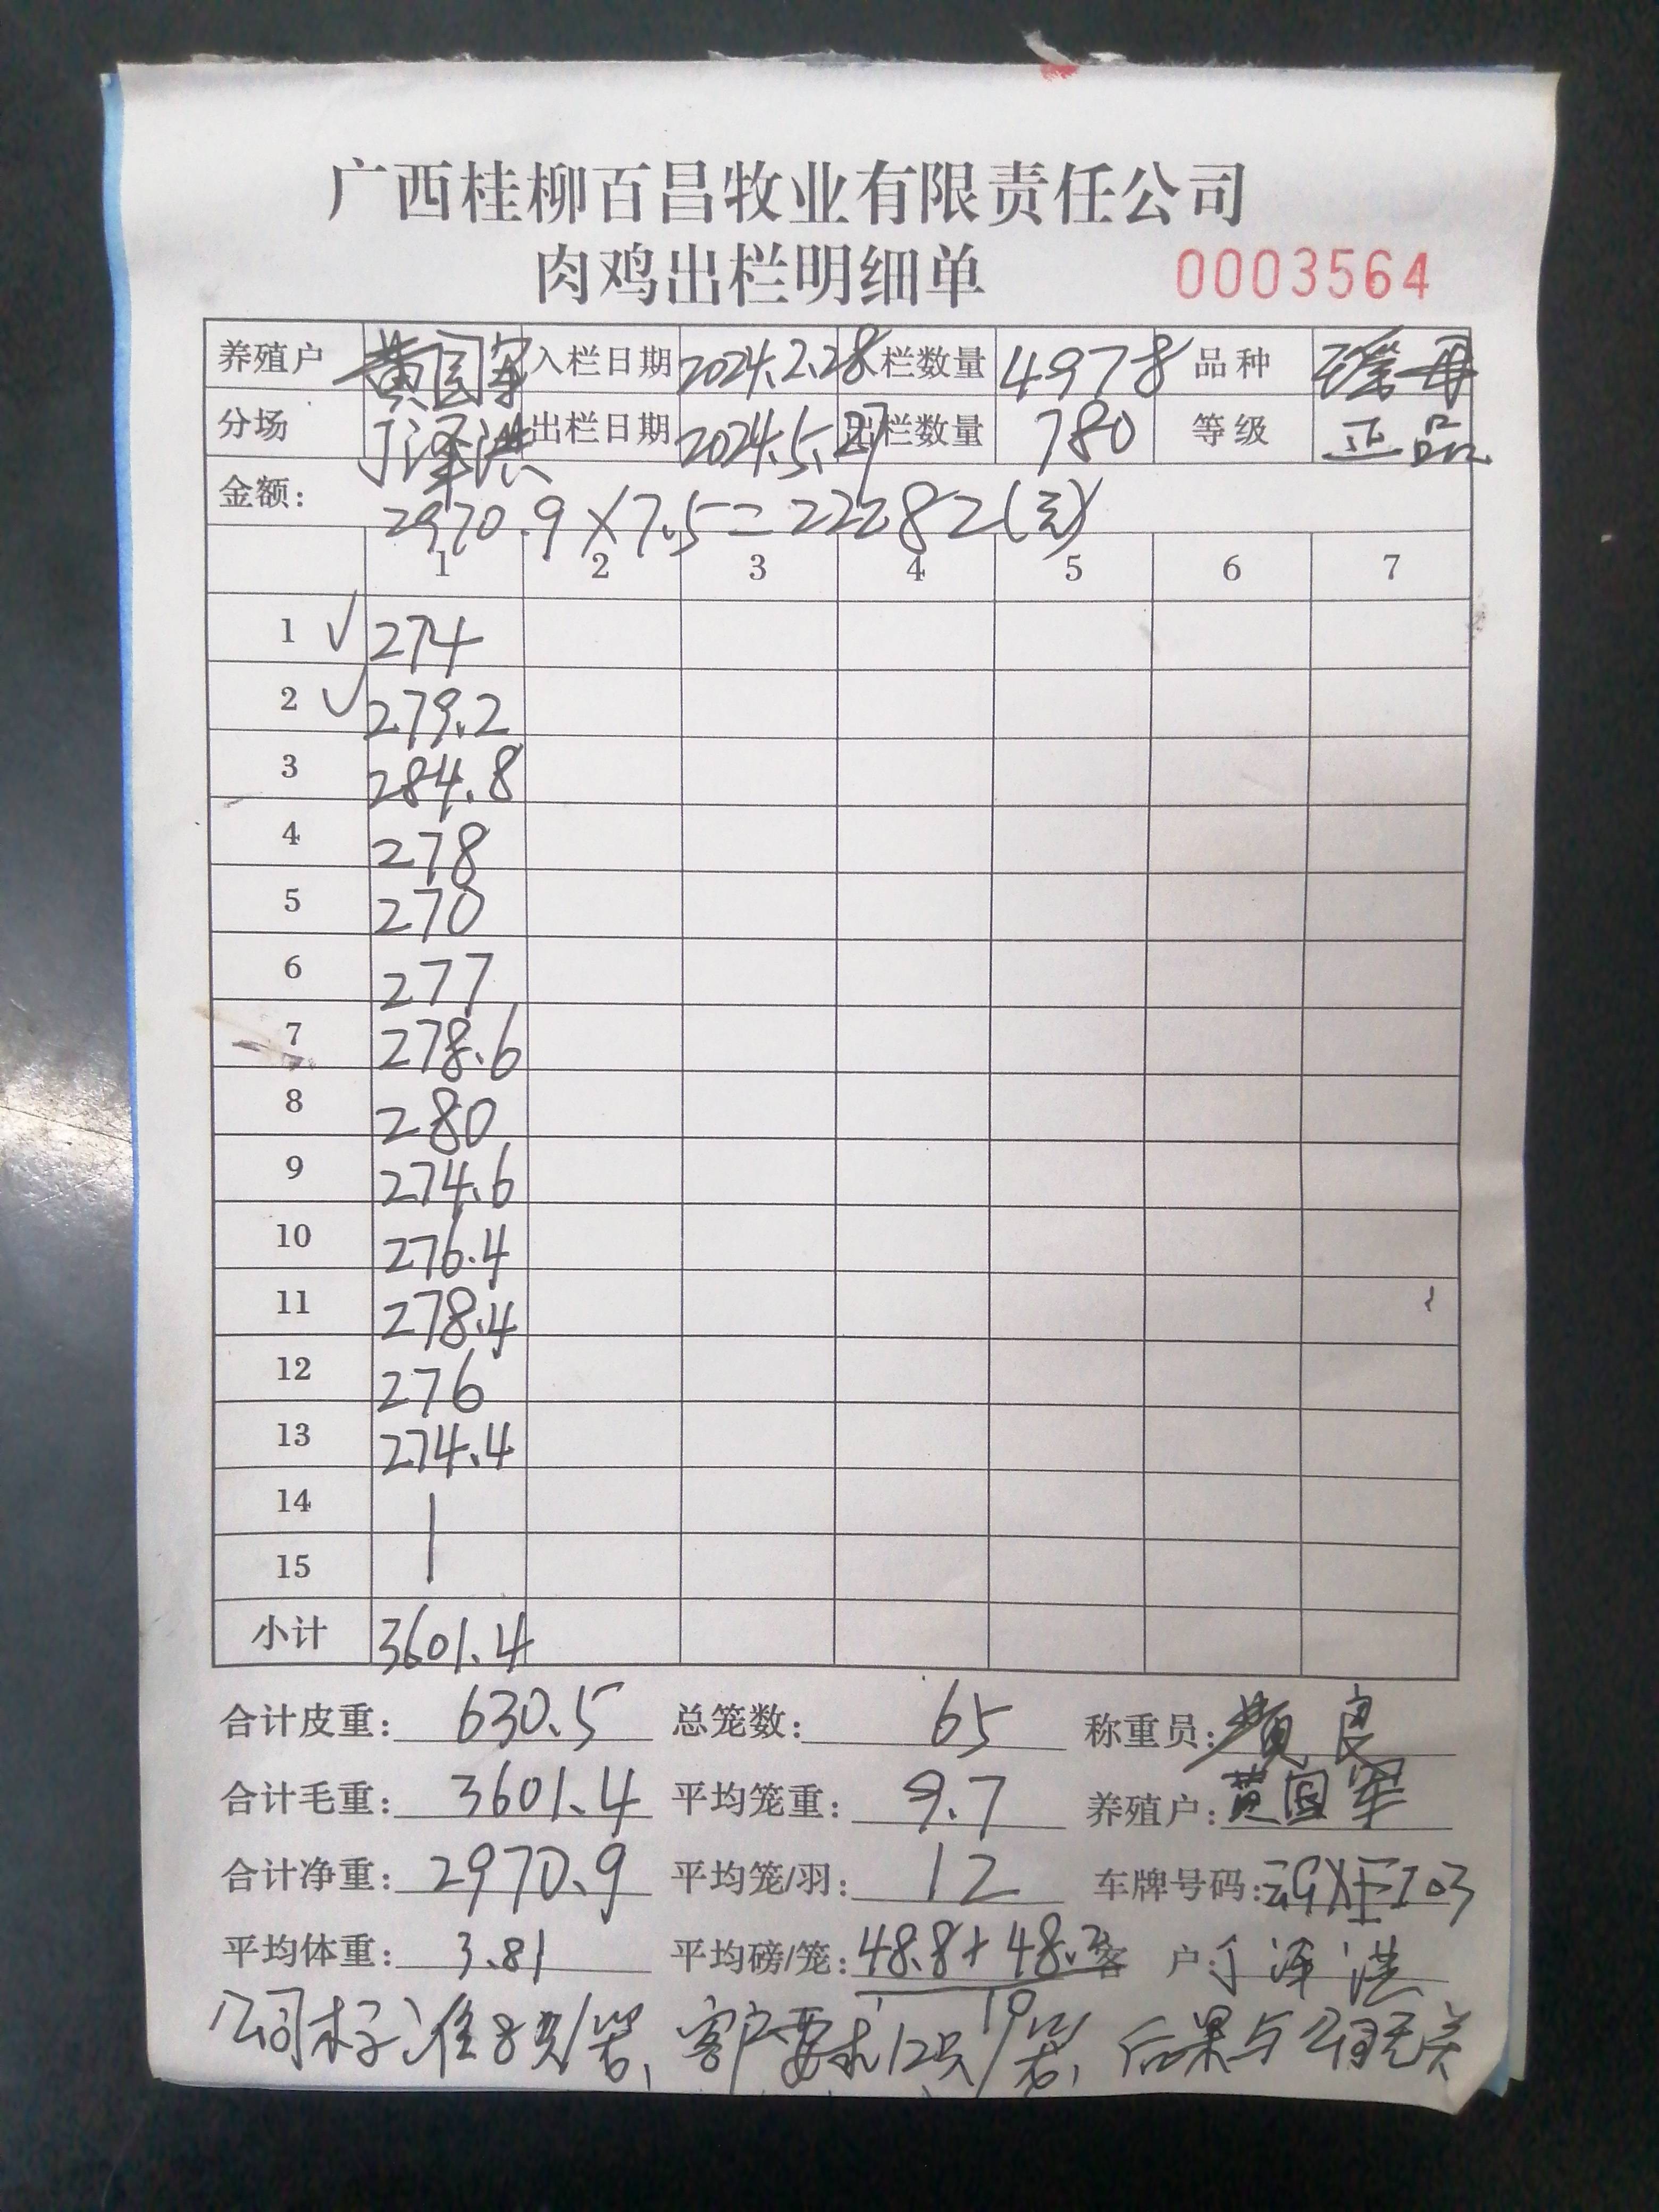 广西桂柳百昌牧业有限责任公司
肉鸡出栏明细单 0003564
养殖户 黄国军 入栏日期 2024.2.28 栏数量 4978 品种 瑶母
分场 丁泽洪 出栏日期 2024.5.27 出栏数量 780 等级 正品
金额: 2970.9×7.5=22282(元)
1 2 3 4 5 6 7
1 √ 274
2 √ 279.2
3 284.8
4 278
5 270
6 277
7 278.6
8 280
9 274.6
10 276.4
11 278.4
12 276
13 274.4
14
15
小计 3601.4
合计皮重: 630.5 总笼数: 65 称重员: 黄良
合计毛重: 3601.4 平均笼重: 9.7 养殖户: 黄国军
合计净重: 2970.9 平均笼/羽: 12 车牌号码:
平均体重: 3.81 平均磅/笼: 48.8+48.2 客户: 丁泽洪
10
公司标准8只/笼、客户要求12只/笼,后果与公司无关